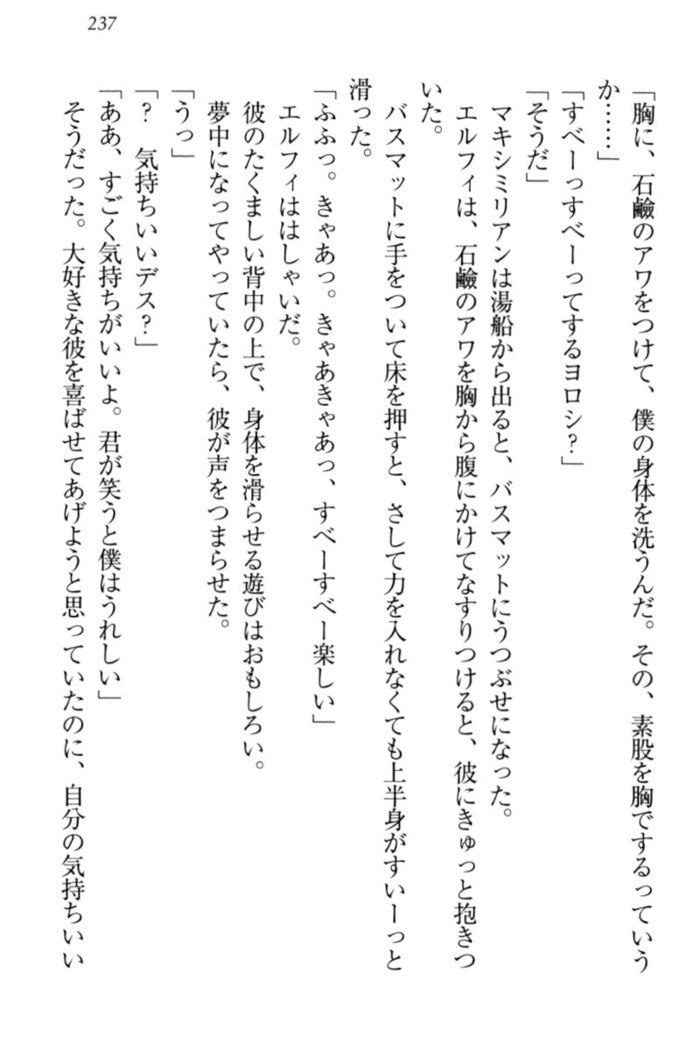 237
「胸に、石鹼のアワをつけて、僕の身体を洗うんだ。その、素股を胸でするっていう
か……」
「すべーっすべーってするヨロシ?」
「そうだ」
マキシミリアンは湯船から出ると、バスマットにうつぶせになった。
エルフィは、石鹼のアワを胸から腹にかけてなすりつけると、彼にきゅっと抱きつ
いた。
バスマットに手をついて床を押すと、さして力を入れなくても上半身がすいーっと
滑った。
「ふふっ。きゃあっ。きゃあきゃあっ、すべーすべー楽しい」
エルフィははしゃいだ。
彼のたくましい背中の上で、身体を滑らせる遊びはおもしろい。
夢中になってやっていたら、彼が声をつまらせた。
「うっ」
「? 気持ちいいデス?」
「ああ、すごく気持ちがいいよ。君が笑うと僕はうれしい」
そうだった。大好きな彼を喜ばせてあげようと思っていたのに、自分の気持ちいい